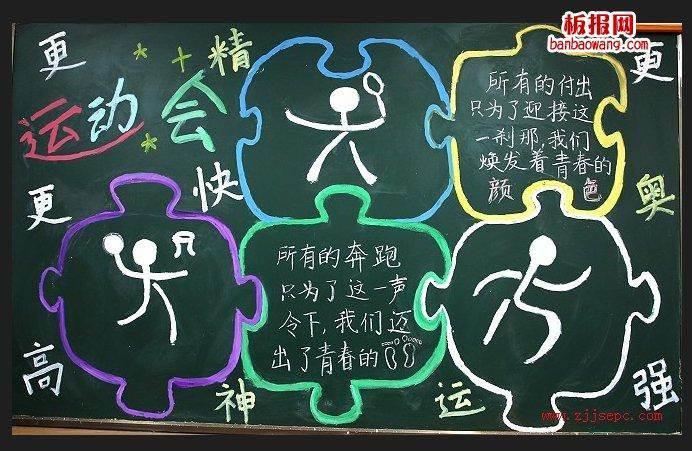 板报网
banbaowang.com
更
精
更
运动会
所有的付出
只为了迎接这
一刹那,我们
焕发着青春的
颜色
快
更
奥
所有的奔跑
只为了这一声
令下,我们迈
出了青春的
高
神
运
强
www.zjjsepc.com